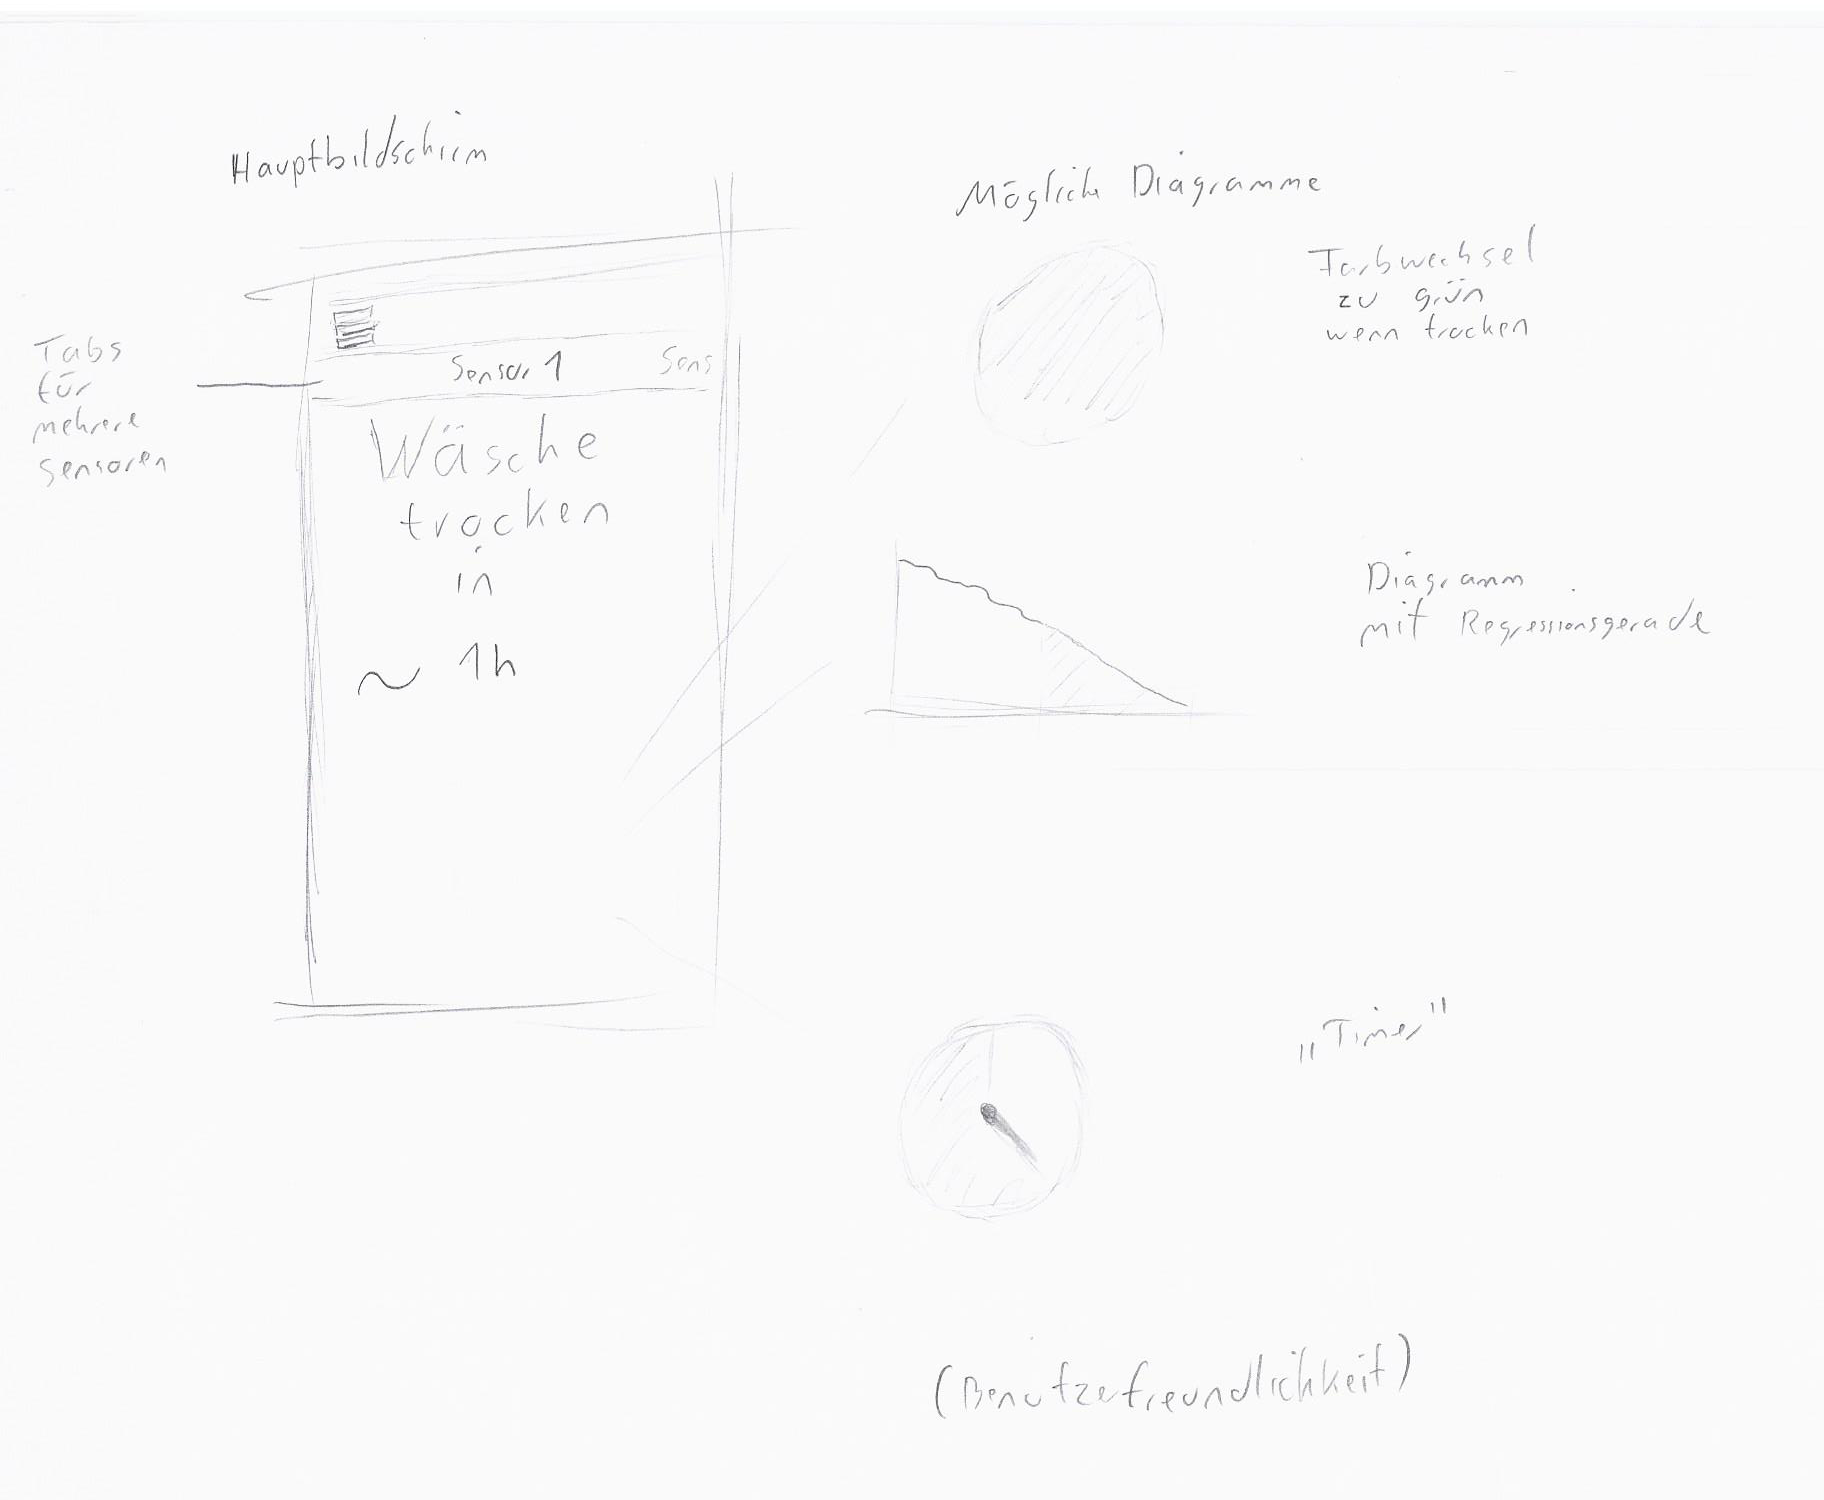 Hauptbildschirm
Tabs
für
mehrere
Sensoren
Sensor 1 Sens
Wäsche
trocken
in
~ 1h
Mögliche Diagramme
Farbwechsel
zu grün
wenn trocken
Diagramm
mit Regressionsgerade
„Timer"
(Benutzefreundlichkeit)